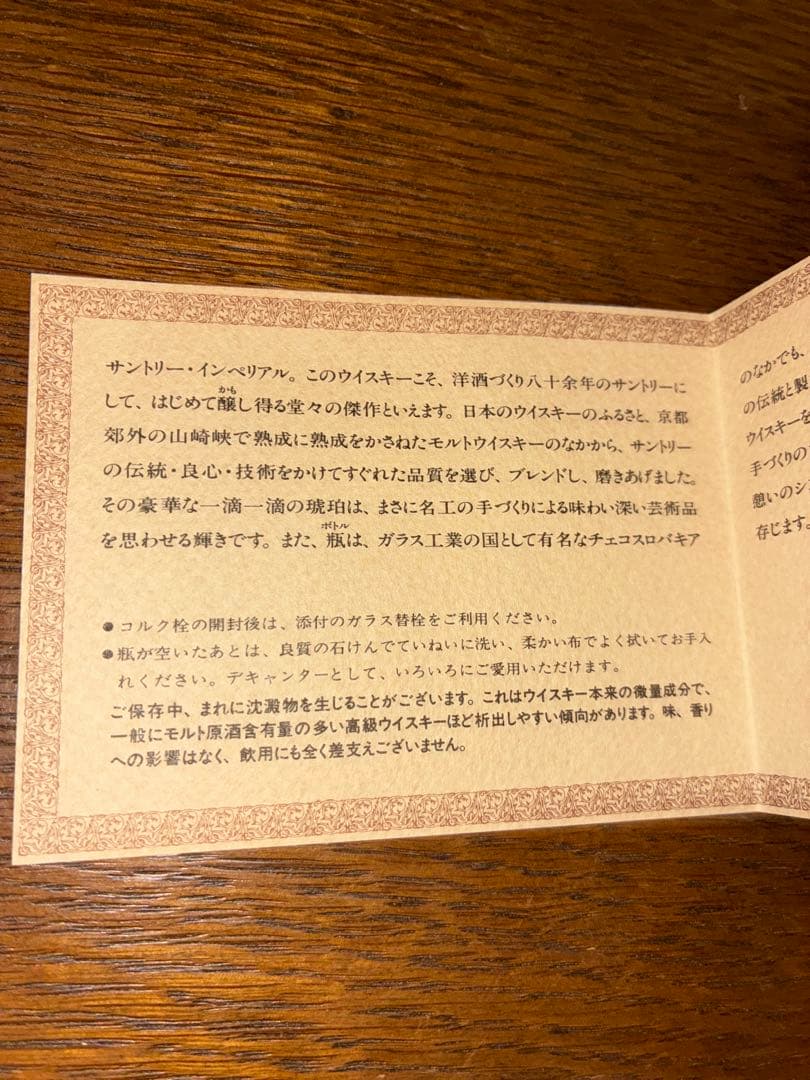 サントリー・インペリアル。このウイスキーこそ、洋酒づくり八十余年のサントリーに
かも
して、はじめて醸し得る堂々の傑作といえます。日本のウイスキーのふるさと、京都
郊外の山崎峡で熟成に熟成をかさねたモルトウイスキーのなかから、サントリー
の伝統・良心・技術をかけてすぐれた品質を選び、ブレンドし、磨きあげました。
その豪華な一滴一滴の琥珀は、まさに名工の手づくりによる味わい深い芸術品
ボトル
を思わせる輝きです。また、瓶は、ガラス工業の国として有名なチェコスロバキア
●コルク栓の開封後は、添付のガラス替栓をご利用ください。
●瓶が空いたあとは、良質の石けんでていねいに洗い、柔かい布でよく拭いてお手入
れください。デキャンターとして、いろいろにご愛用いただけます。
ご保存中、まれに沈澱物を生じることがございます。これはウイスキー本来の微量成分で、
一般にモルト原酒含有量の多い高級ウイスキーほど析出しやすい傾向があります。味、香り
への影響はなく、飲用にも全く差支えございません。
のなかでも、
の伝統と製
ウイスキーを
手づくりの
憩いのシ
存じます。